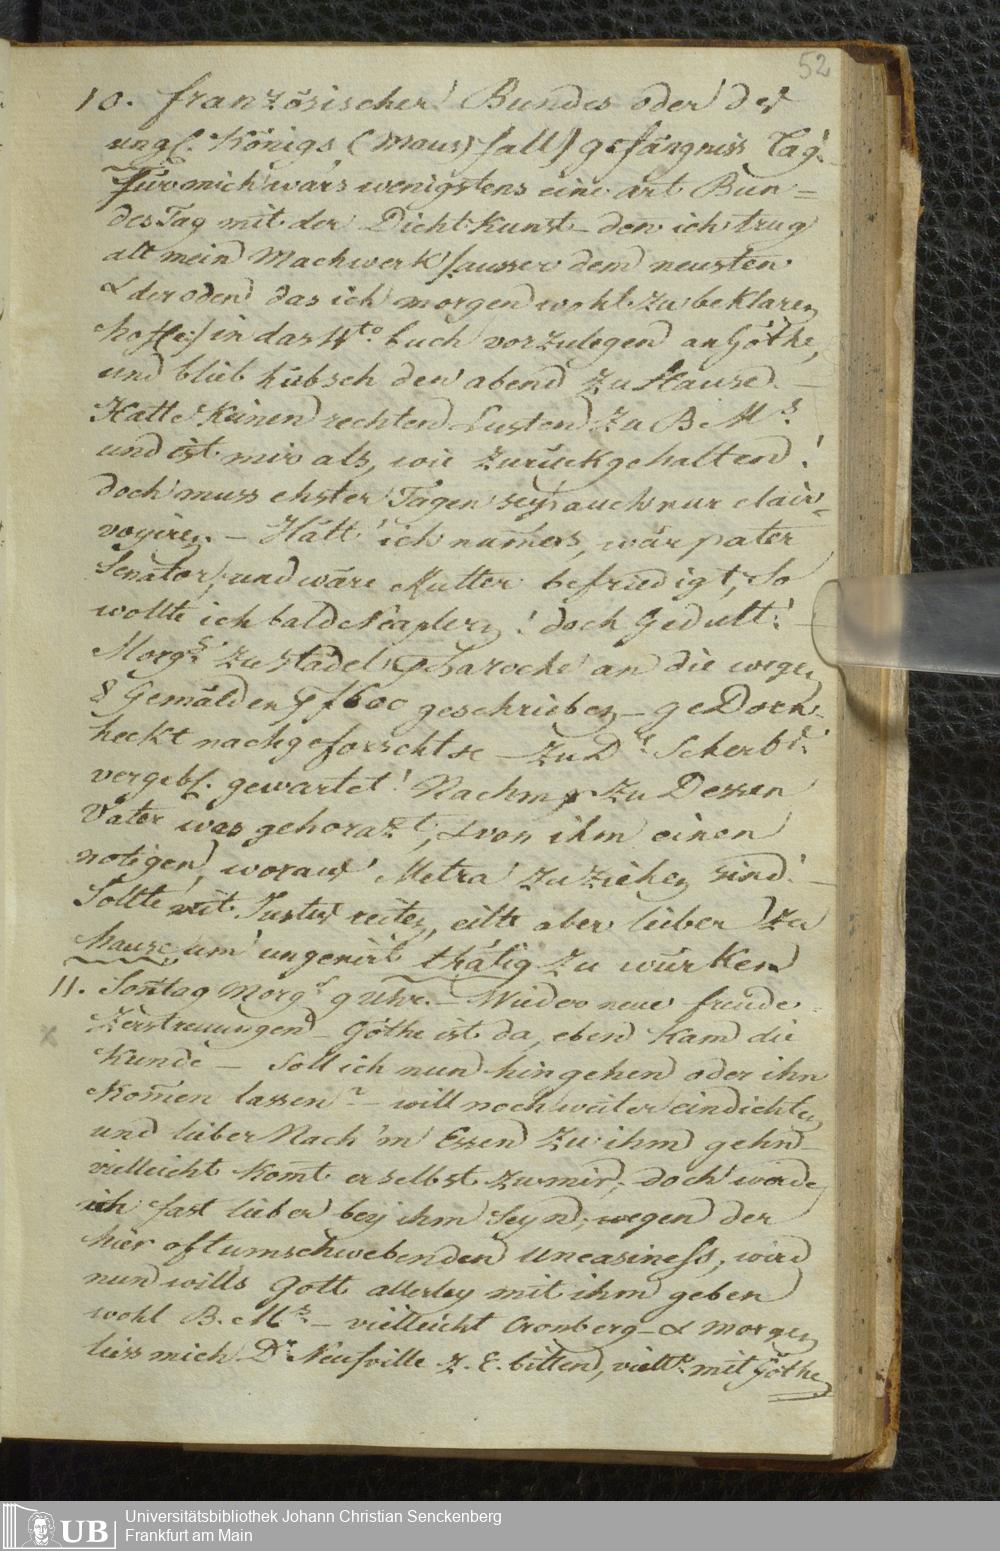 52
10. französischer Bundes oder des
ungl. Königs (Maus) fall) gefängniss Tag!
für mich wärs wenigstens eine art Bun=
desTag mit der Dichtkunst – den ich trug
all mein Machwerk /ausser dem neusten
& der oden das ich morgen wohl zu beklaren
hoffe/ in das 4to buch vorzulegen an Göthe,
und blieb hübsch den abend zu Hause. –
Hatte keinen rechten Lusten zu B. Ms
und ist mir als, wie zurückgehalten!
doch muss ehster Tagen sey's auch nur clair=
voyiren. – Hätt' ich numers, wär pater
Senator, und wäre Mutter befriedigt, So
wollte ich bald Neaplern! doch Gedult! –
Morgs zu Städel, Laroche an die wegen
8 Gemälden f 600 geschrieben – ge Dorn
heckt nachgeforscht – zu Dr Scherbs.
vergebl. gewartet! Nachm zu Dessen
Vater was gehorazt, & von ihm einen
notigen, woraus Metra zu ziehen sind! –
Sollte mit Justus reiten, eilte aber lieber zu
hause um ungenirt thätig zu würken
11. Sontag Morgs 9 Uhr. – Wieder neue freude
Zerstreuungen – Göthe ist da, eben kam die
Kunde – Soll ich nun hingehen oder ihn
kom̄en lassen? – will noch weiter eindichten
und lieber Nach'm Essen zu ihm gehn –
vielleicht kom̄t er selbst zu mir, doch werde
ich fast lieber bey ihm Seyn, wegen der
hier oft umschwebenden uneasiness, wird
nun wills Gott allerley mit ihm geben
wohl B. Ms – vielleicht Cronberg – & morgen
liess mich Dr Neufville z. E. bitten, viellt mit Göthe
UB
Universitätsbibliothek Johann Christian Senckenberg
Frankfurt am Main